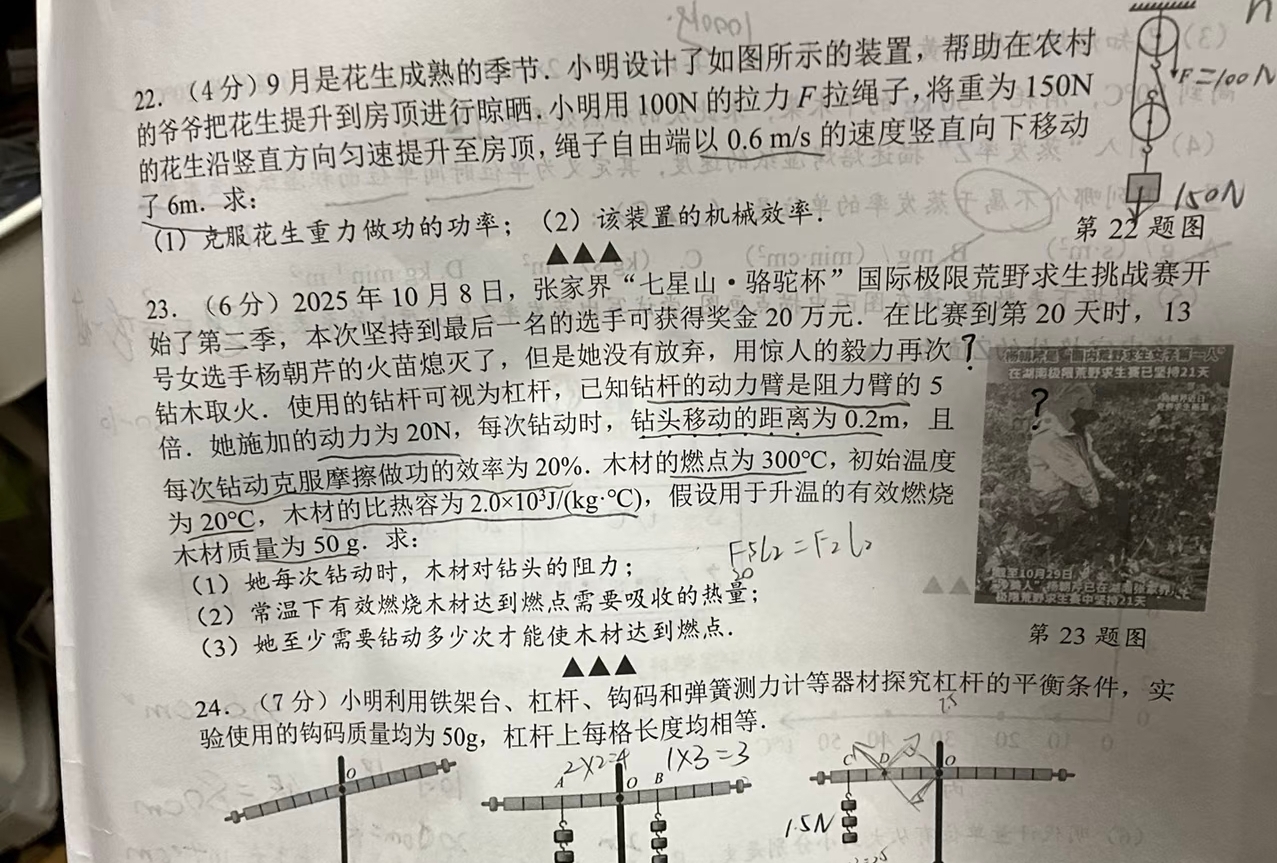 22.（4分）9月是花生成熟的季节．小明设计了如图所示的装置，帮助在农村
的爷爷把花生提升到房顶进行晾晒．小明用100N的拉力F拉绳子，将重为150N
的花生沿竖直方向匀速提升至房顶，绳子自由端以0.6 m/s的速度竖直向下移动
了6m．求：
（1）克服花生重力做功的功率；（2）该装置的机械效率．
▲▲▲
F=100N
150N
第22题图
23.（6分）2025年10月8日，张家界“七星山·骆驼杯”国际极限荒野求生挑战赛开
始了第二季，本次坚持到最后一名的选手可获得奖金20万元．在比赛到第20天时，13
号女选手杨朝芹的火苗熄灭了，但是她没有放弃，用惊人的毅力再次
钻木取火．使用的钻杆可视为杠杆，已知钻杆的动力臂是阻力臂的5
倍．她施加的动力为20N，每次钻动时，钻头移动的距离为0.2m，且
每次钻动克服摩擦做功的效率为20%．木材的燃点为300℃，初始温度
为20℃，木材的比热容为2.0×10³J/(kg·℃)，假设用于升温的有效燃烧
木材质量为50 g．求：
（1）她每次钻动时，木材对钻头的阻力；
（2）常温下有效燃烧木材达到燃点需要吸收的热量；
（3）她至少需要钻动多少次才能使木材达到燃点．
▲▲▲
F5l₂=F₂l₂
20
?
?
在湖南极限荒野求生赛已坚持21天
截至10月29日
极限荒野求生赛中坚持21天
第23题图
24.（7分）小明利用铁架台、杠杆、钩码和弹簧测力计等器材探究杠杆的平衡条件，实
验使用的钩码质量均为50g，杠杆上每格长度均相等．
2×2=4
1×3=3
O
A
O
B
C
D
O
1.5N